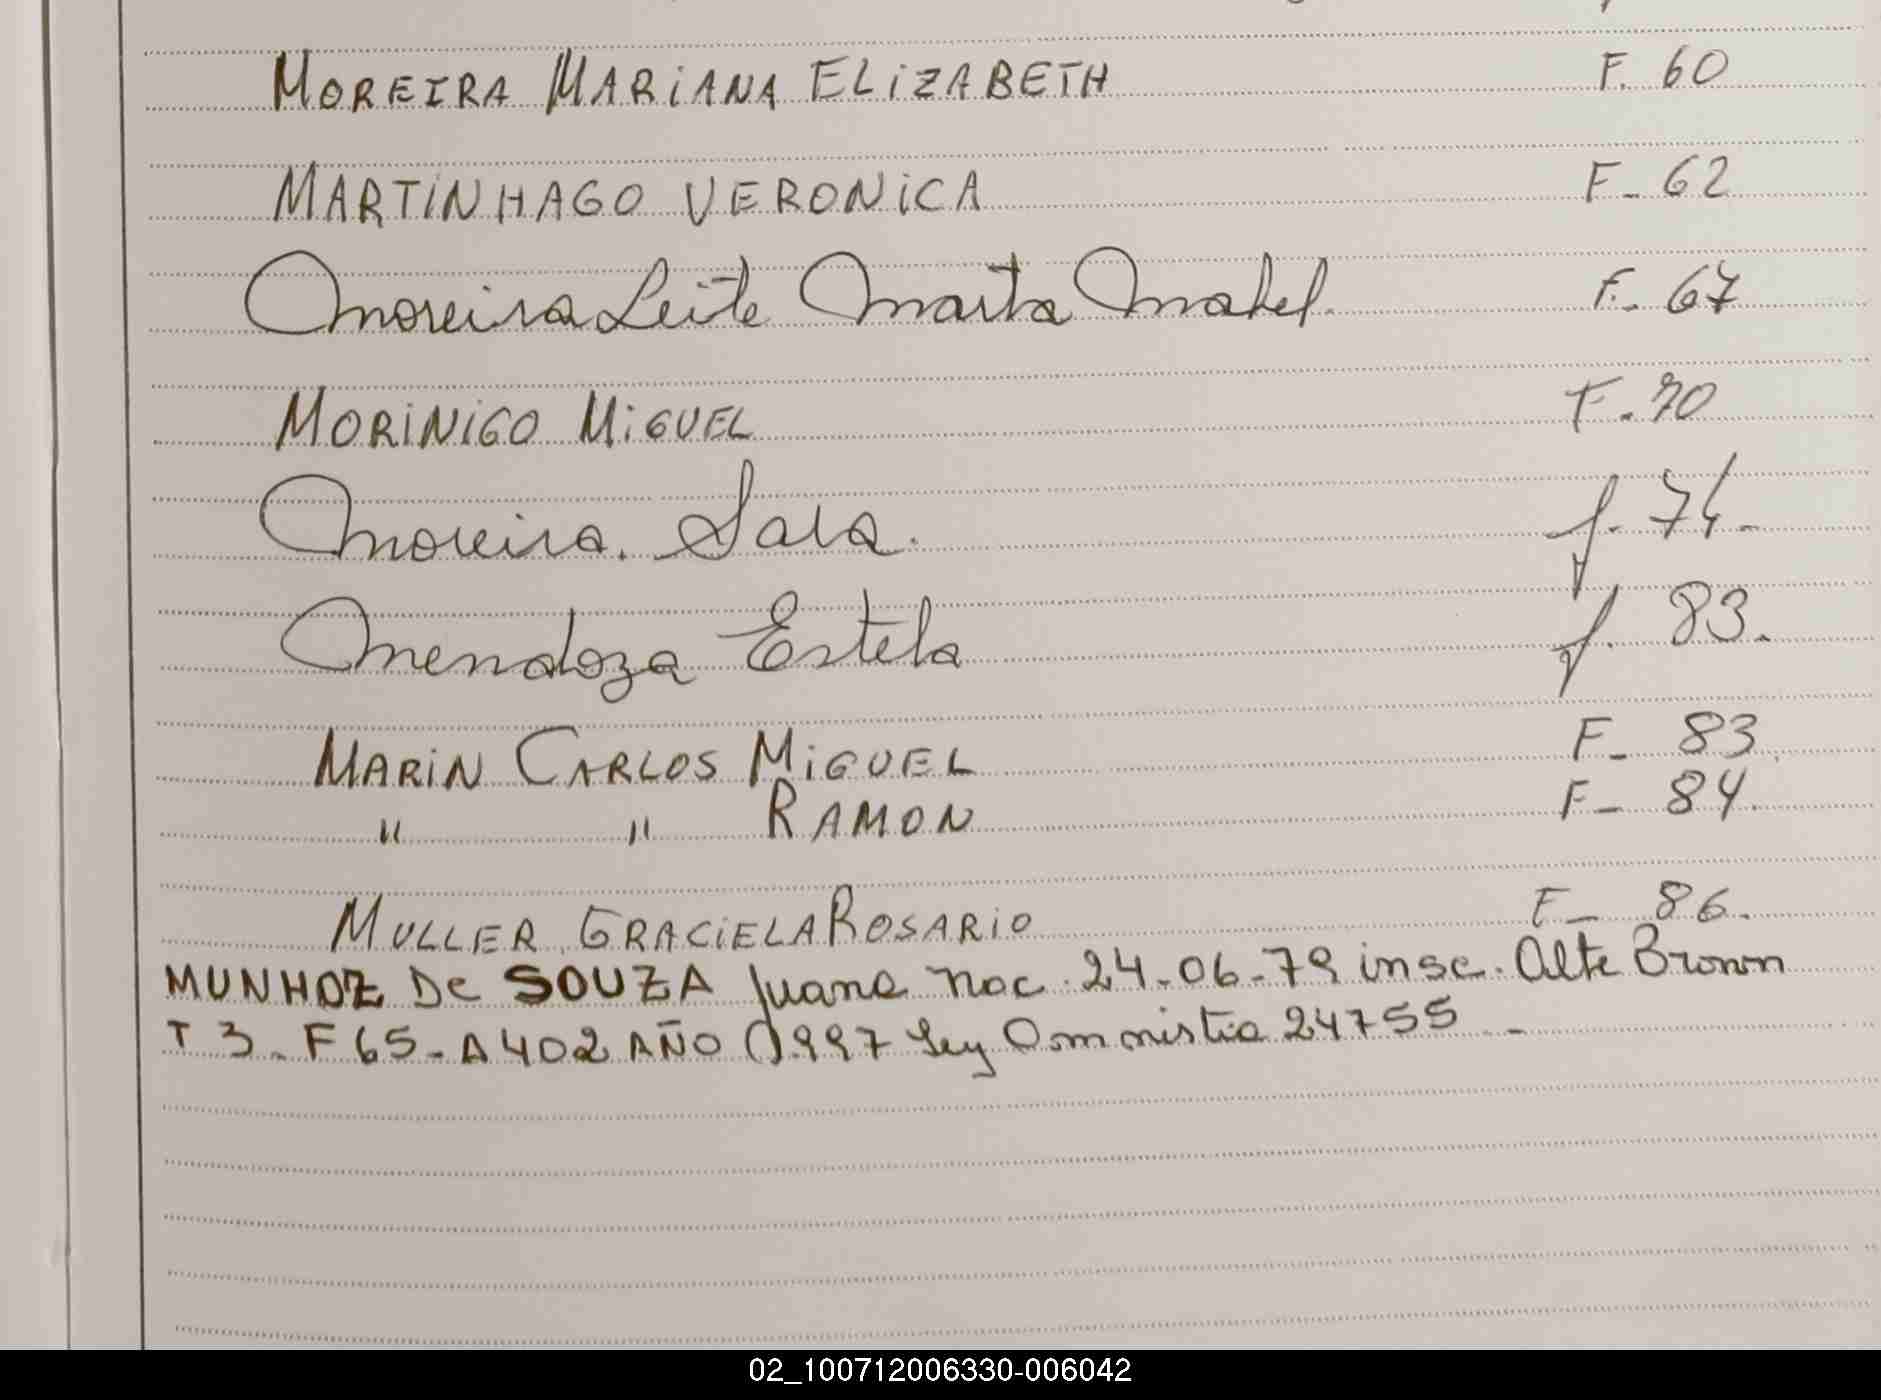 MOREIRA MARIANA ELIZABETH F. 60
MARTINHAGO VERONICA F- 62
Moreira Leite Marta Mabel. F- 67
MORINIGO MIGUEL F. 70
Moreira. Sara. f. 74-
Mendoza Estela f. 83.
MARIN CARLOS MIGUEL F- 83
" " RAMON F- 84.
MULLER GRACIELA ROSARIO F- 86.
MUNHOZ De SOUZA Juana nac. 24-06-79 insc. Alte Brown
T 3- F 65- A 402 AÑO 1997 Ley Ammistia 24755 -
02_100712006330-006042